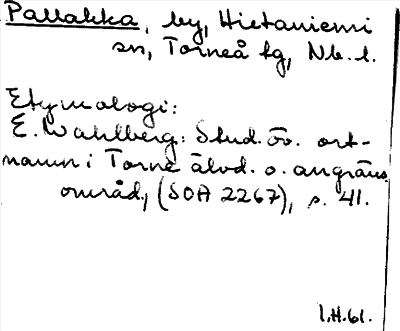 Pallakka, by, Hietaniemi
sn, Torneå tg, Nb. l.
Etymologi:
E. Wahlberg: Stud. öv. ort-
namn i Torne älvd. o. angräns.
område, (SOA 2267), s. 41.
1.H.61.